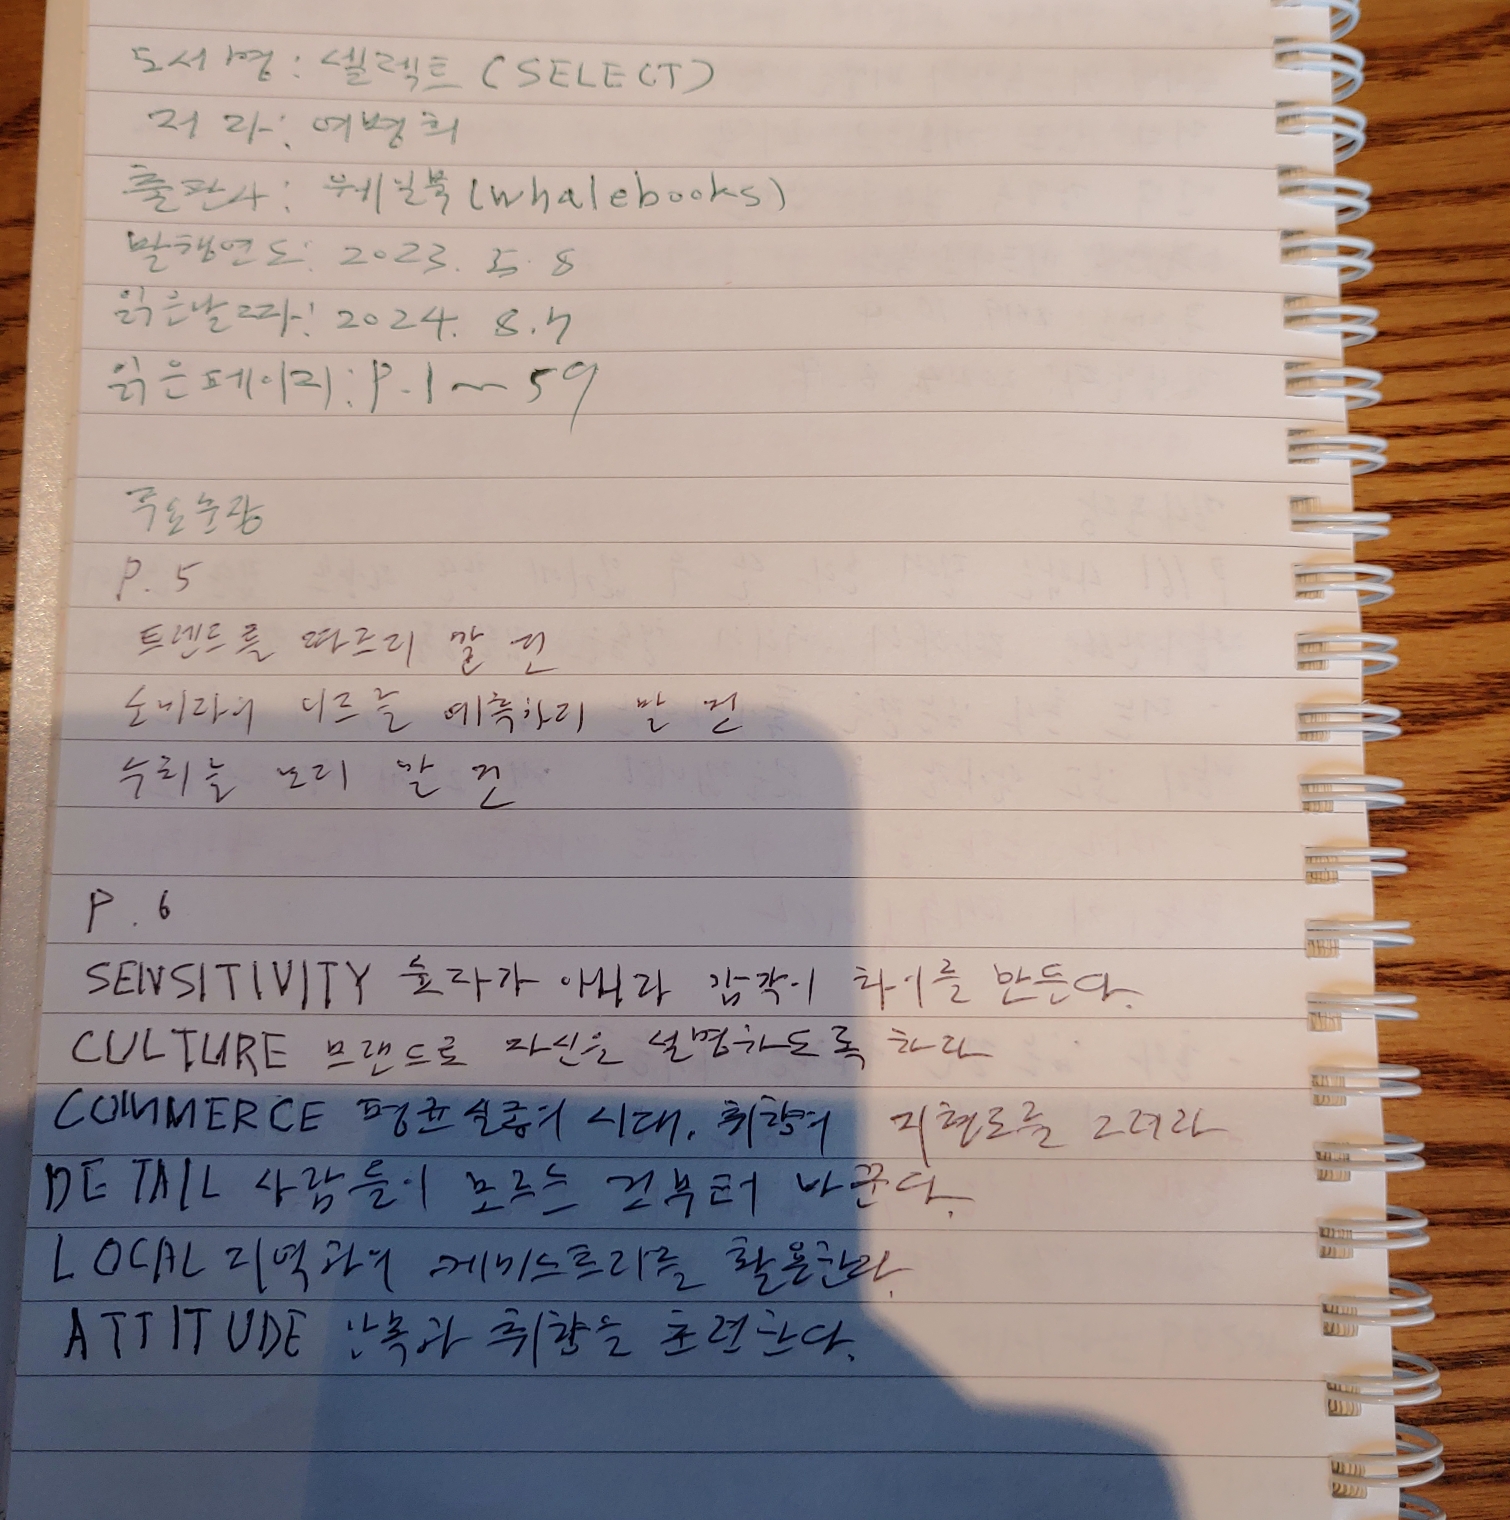 도서명: 셀렉트(SELECT)
저 자: 여병희
출판사: 웨일북(whalebooks)
발행연도: 2023. 5. 8
읽은날짜: 2024. 8. 7
읽은페이지: P. 1~59
주요문장
P. 5
트렌드를 따르지 말 것
소비자의 니즈를 예측하지 말 것
수치는 보지 말 것
P. 6
SENSITIVITY 효과가 아니라 감각이 차이를 만든다.
CULTURE 브랜드로 자신을 설명하도록 하라
COMMERCE 평균실종의 시대, 취향의 지형도를 그려라
DETAIL 사람들이 모르는 것부터 바꾼다.
LOCAL 지역과의 케미스트리를 활용한다.
ATTITUDE 안목과 취향을 훈련한다.